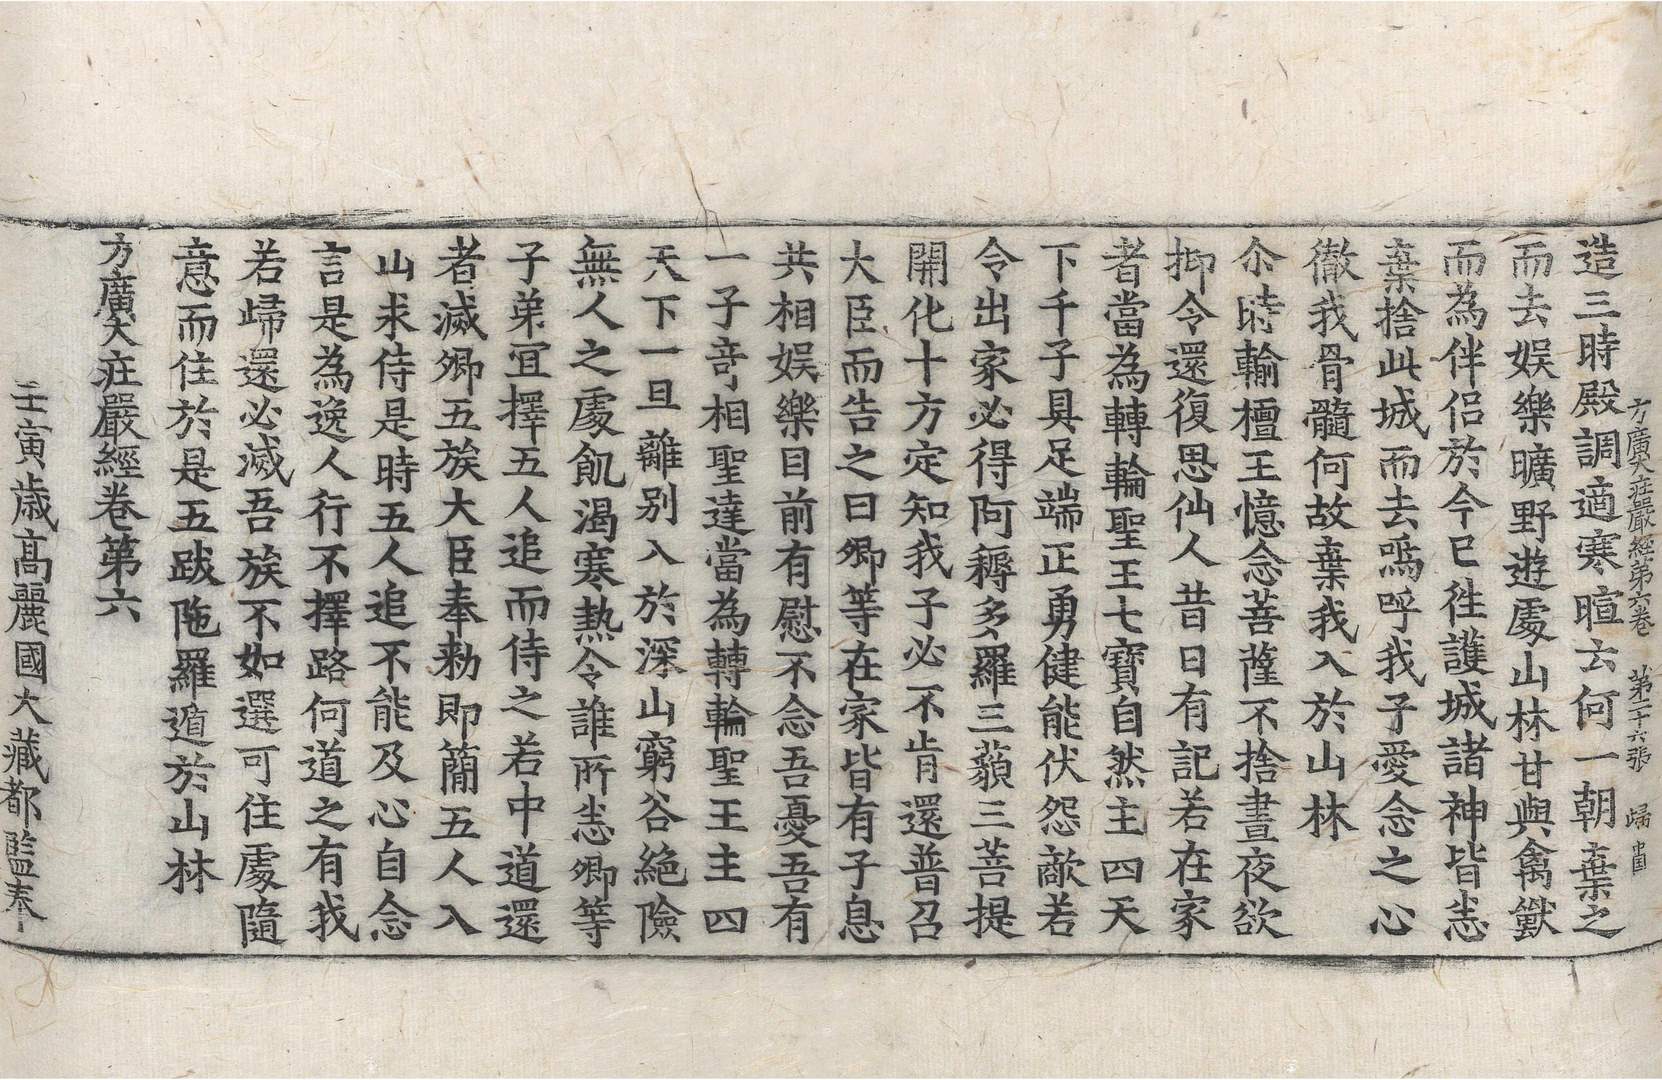 方廣大莊嚴經第六卷　第二十六張　歸
造三時殿調適寒暄云何一朝棄之
而去娛樂曠野遊處山林甘與禽獸
而為伴侶於今已往護城諸神皆悉
棄捨此城而去嗚呼我子愛念之心
徹我骨髓何故棄我入於山林
尒時輸檀王憶念菩薩不捨晝夜欲
抑令還復思仙人昔日有記若在家
者當為轉輪聖王七寶自然主四天
下千子具足端正勇健能伏怨敵若
令出家必得阿耨多羅三藐三菩提
開化十方定知我子必不肯還普召
大臣而告之曰卿等在家皆有子息
共相娛樂目前有慰不念吾憂吾有
一子竒相聖達當為轉輪聖王主四
天下一旦離別入於深山窮谷絕險
無人之處飢渴寒熱令誰所悉卿等
子弟冝擇五人追而侍之若中道還
者滅卿五族大臣奉勑即簡五人入
山求侍是時五人追不能及心自念
言是為逸人行不擇路何道之有我
若歸還必滅吾族不如選可住處隨
意而住於是五跋陁羅遁於山林
方廣大莊嚴經卷第六
壬寅歲高麗國大藏都監奉